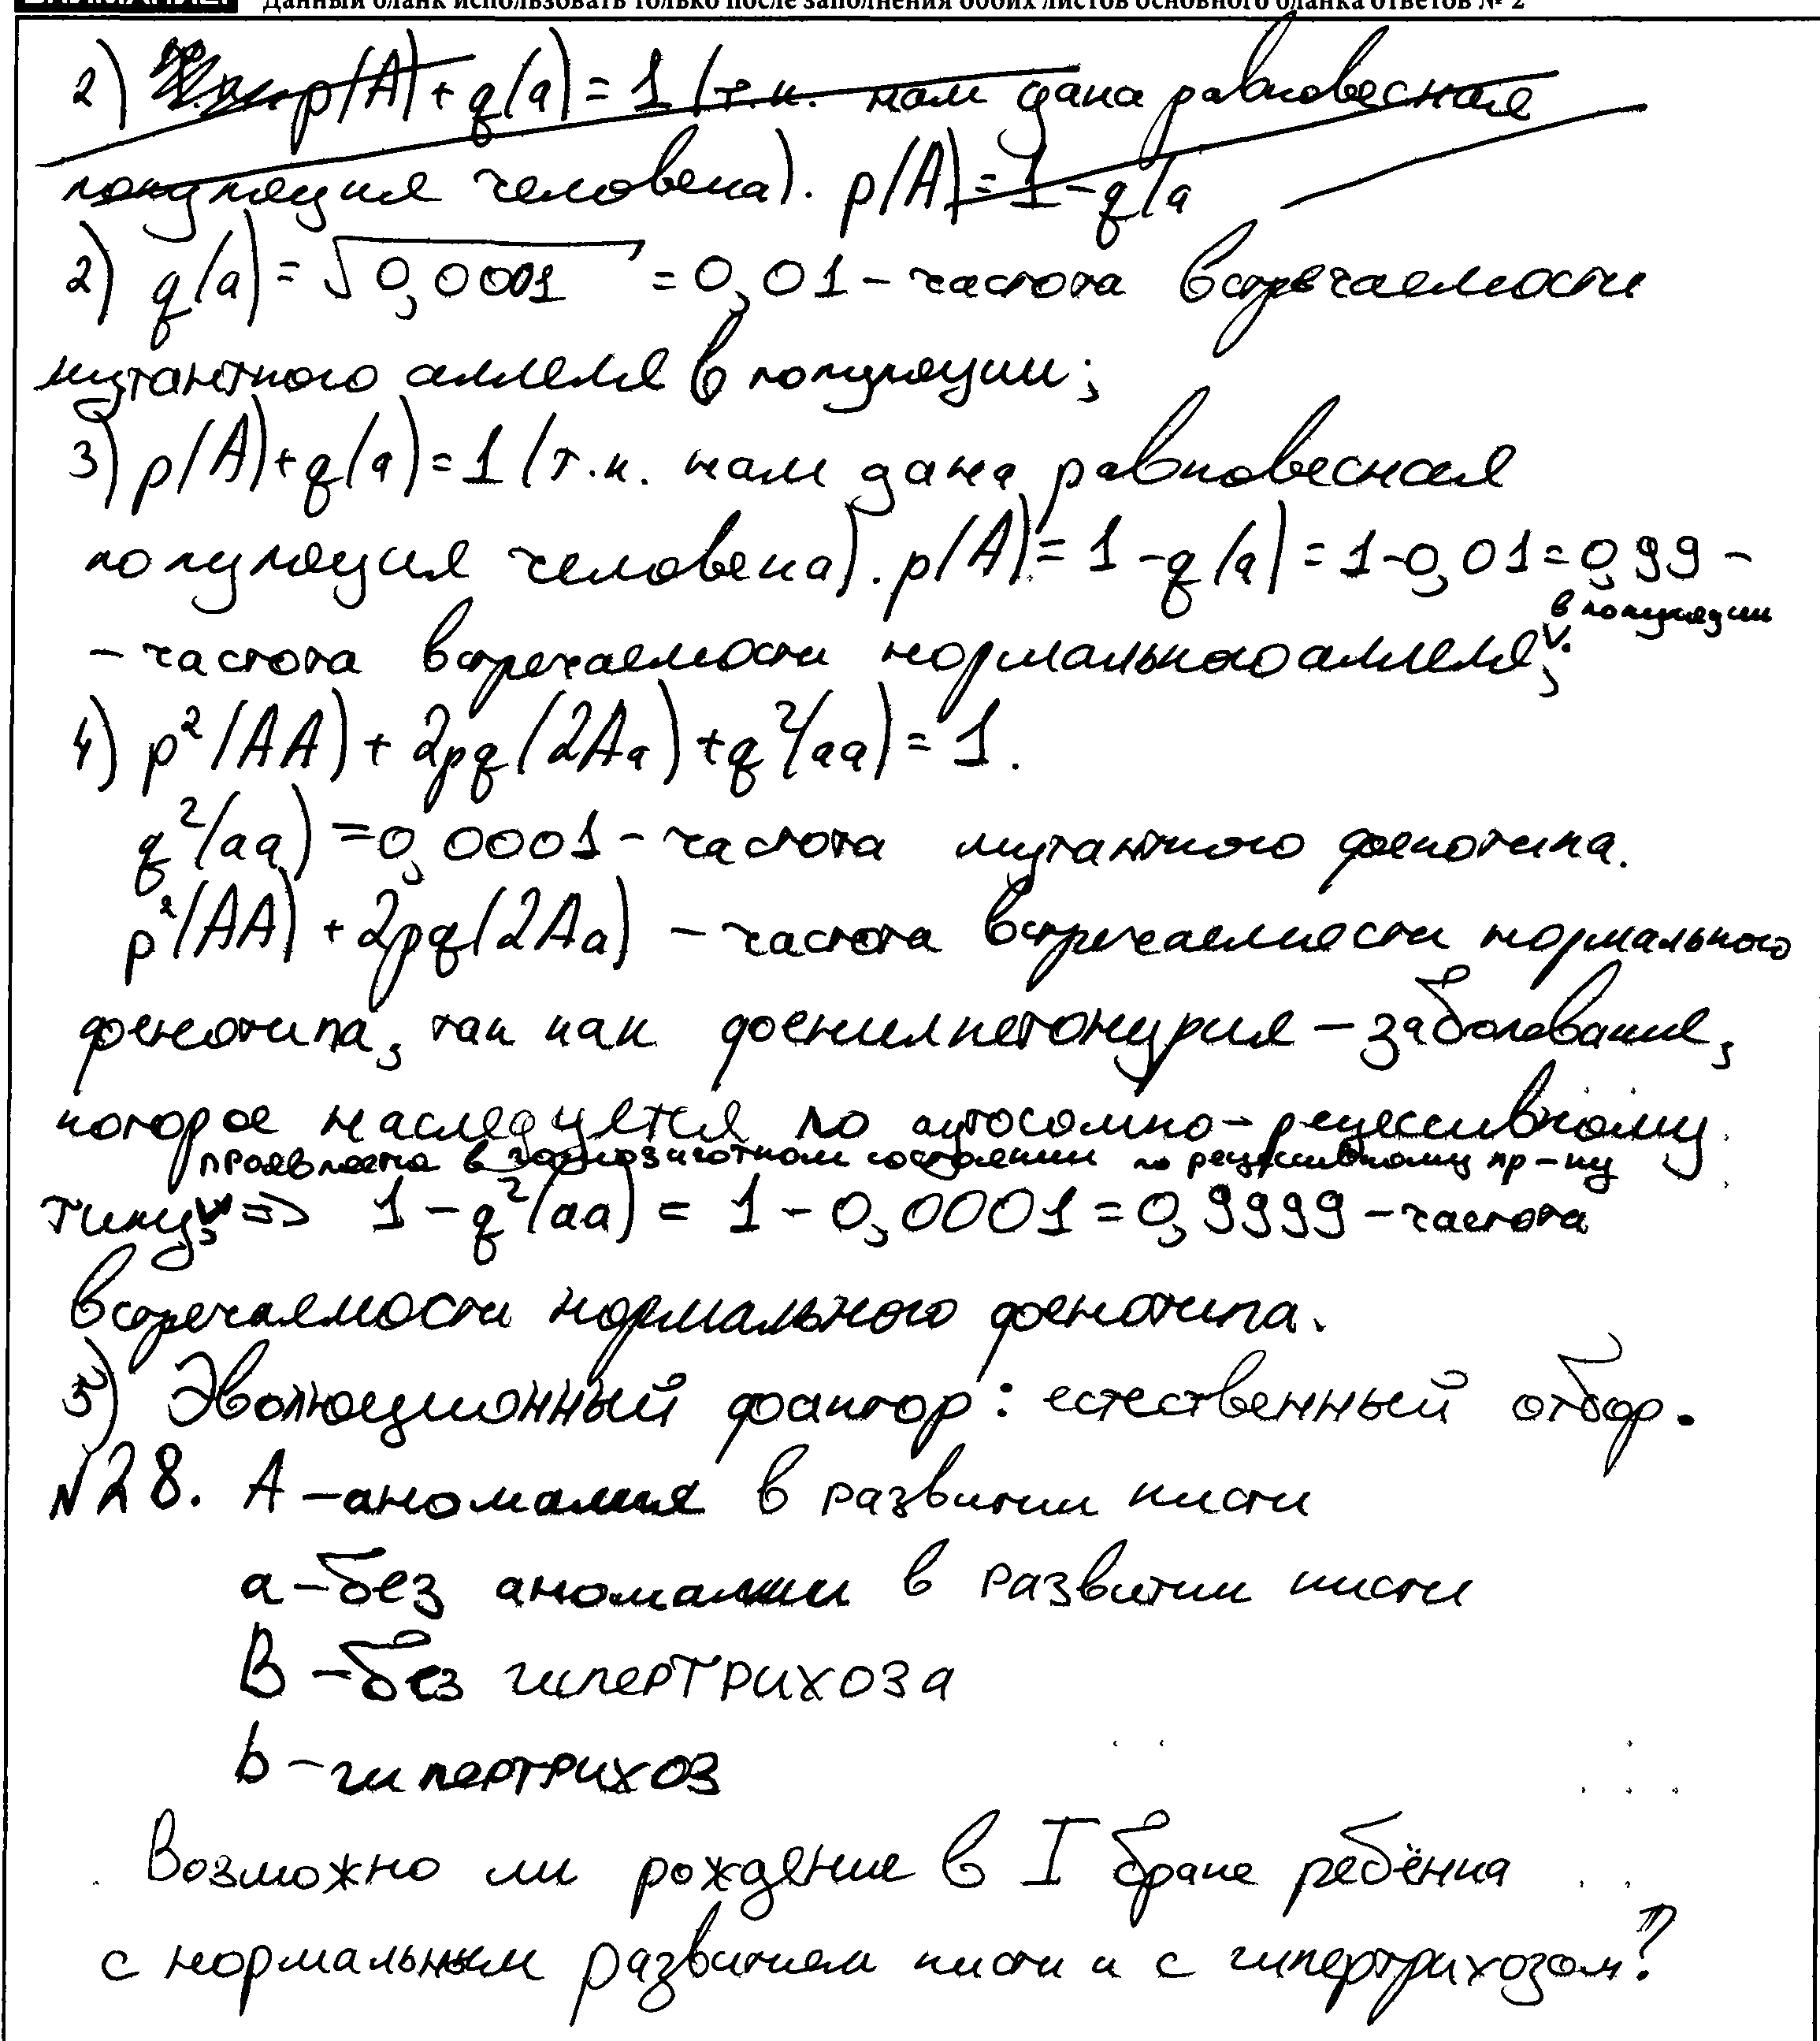 Данный бланк использовать только после заполнения обоих листов основного бланка ответов № 2
2) p(A)+q(a)=1 (т.к. нам дана равновесная
популяция человека). p(A)=1-q(a
2) q(a)=√0,0001=0,01 – частота встречаемости
мутантного аллеля в популяции;
3) p(A)+q(a)=1 (т.к. нам дана равновесная
популяция человека). p(A)=1-q(a)=1-0,01=0,99 –
в популяции
– частота встречаемости нормального аллеля;
4) p²(AA)+2pq(2Aa)+q²(aa)=1.
q²(aa)=0,0001 – частота мутантного фенотипа.
p²(AA)+2pq(2Aa) – частота встречаемости нормального
фенотипа, так как фенилкетонурия – заболевание,
которое наследуется по аутосомно-рецессивному
проявляется в гомозиготном состоянии по рецессивному пр-ку
типу; => 1-q²(aa)=1-0,0001=0,9999 – частота
встречаемости нормального фенотипа.
5) Эволюционный фактор: естественный отбор.
№28. А – аномалия в развитии кисти
а – без аномалии в развитии кисти
В – без гипертрихоза
b – гипертрихоз
Возможно ли рождение в I браке ребёнка
с нормальным развитием кисти и с гипертрихозом?